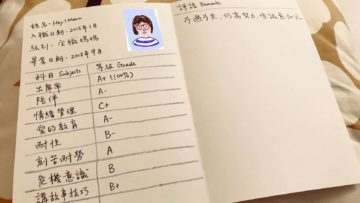 姓名: Hey! Mama
入職日期: 2015年1月
級別: 全職媽媽
畢業日期: 2018年9月
科目 Subjects 等級 Grade
出席率 A+ (100%)
陪伴 A-
情緒管理 C+
愛的教育 A-
耐性 B-
刻苦耐勞 A
危機意識 B
講故事技巧 B+
評語 Remarks